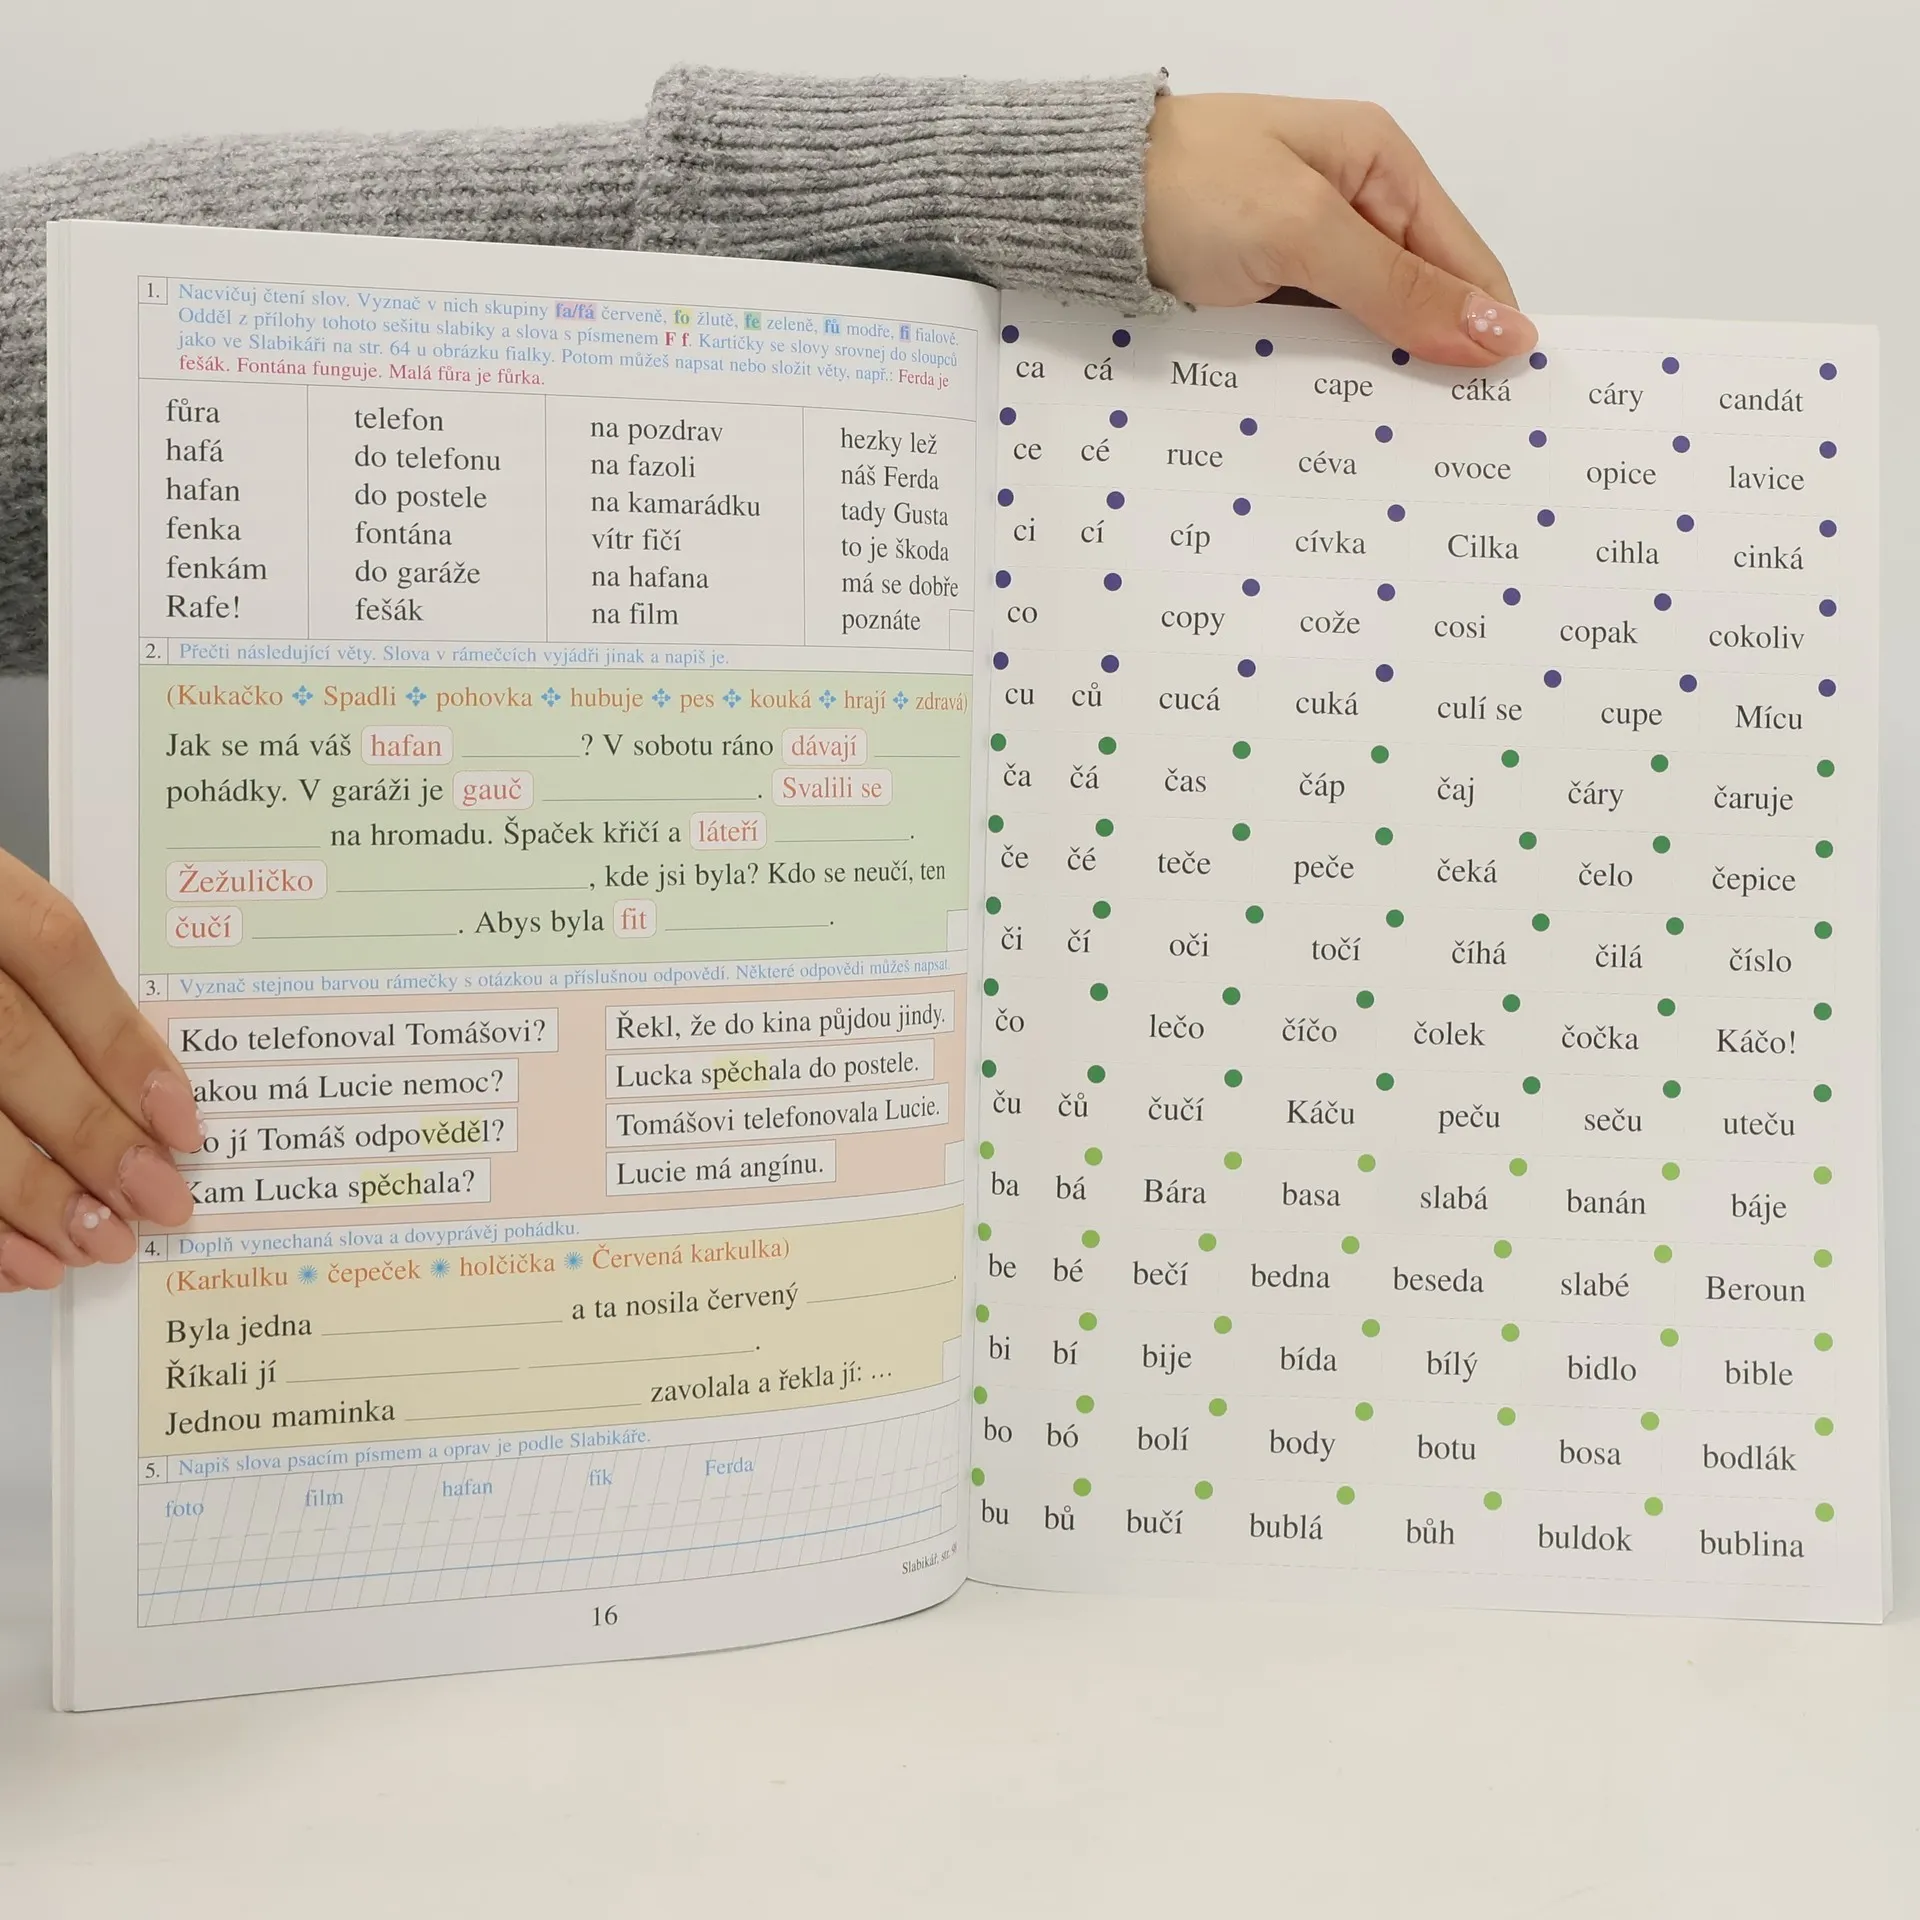 1. Nacvičuj čtení slov. Vyznač v nich skupiny fa/fá červeně, fo žlutě, fe zeleně, fů modře, fi fialově.
Odděl z přílohy tohoto sešitu slabiky a slova s písmenem F f. Kartičky se slovy srovnej do sloupců
jako ve Slabikáři na str. 64 u obrázku fialky. Potom můžeš napsat nebo složit věty, např.: Ferda je
fešák. Fontána funguje. Malá fůra je fůrka.
fůra
hafá
hafan
fenka
fenkám
Rafe!
telefon
do telefonu
do postele
fontána
do garáže
fešák
na pozdrav
na fazoli
na kamarádku
vítr fičí
na hafana
na film
hezky lež
náš Ferda
tady Gusta
to je škoda
má se dobře
poznáte
2. Přečti následující věty. Slova v rámečcích vyjádři jinak a napiš je.
(Kukačko Spadli pohovka hubuje pes kouká hrají zdravá)
Jak se má váš hafan ? V sobotu ráno dávají
pohádky. V garáži je gauč . Svalili se
na hromadu. Špaček křičí a láteří .
Žežuličko , kde jsi byla? Kdo se neučí, ten
čučí . Abys byla fit .
3. Vyznač stejnou barvou rámečky s otázkou a příslušnou odpovědí. Některé odpovědi můžeš napsat.
Kdo telefonoval Tomášovi?
akou má Lucie nemoc?
o jí Tomáš odpověděl?
Kam Lucka spěchala?
Řekl, že do kina půjdou jindy.
Lucka spěchala do postele.
Tomášovi telefonovala Lucie.
Lucie má angínu.
4. Doplň vynechaná slova a dovyprávěj pohádku.
(Karkulku čepeček holčička Červená karkulka)
Byla jedna a ta nosila červený .
Říkali jí .
Jednou maminka zavolala a řekla jí: ...
5. Napiš slova psacím písmem a oprav je podle Slabikáře.
foto film hafan fík Ferda
Slabikář, str.
16
ca cá Míca cape cáká cáry candát
ce cé ruce céva ovoce opice lavice
ci cí cíp cívka Cilka cihla cinká
co copy cože cosi copak cokoliv
cu ců cucá cuká culí se cupe Mícu
ča čá čas čáp čaj čáry čaruje
če čé teče peče čeká čelo čepice
či čí oči točí číhá čilá číslo
čo lečo číčo čolek čočka Káčo!
ču čů čučí Káču peču seču uteču
ba bá Bára basa slabá banán báje
be bé bečí bedna beseda slabé Beroun
bi bí bije bída bílý bidlo bible
bo bó bolí body botu bosa bodlák
bu bů bučí bublá bůh buldok bublina